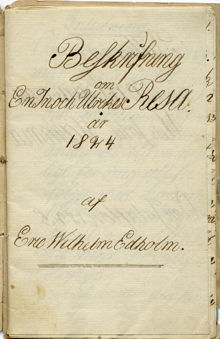 Beskrifning
om
En In och Utrikes Resa.
år
1824
af
Eric Wilhelm Edholm.